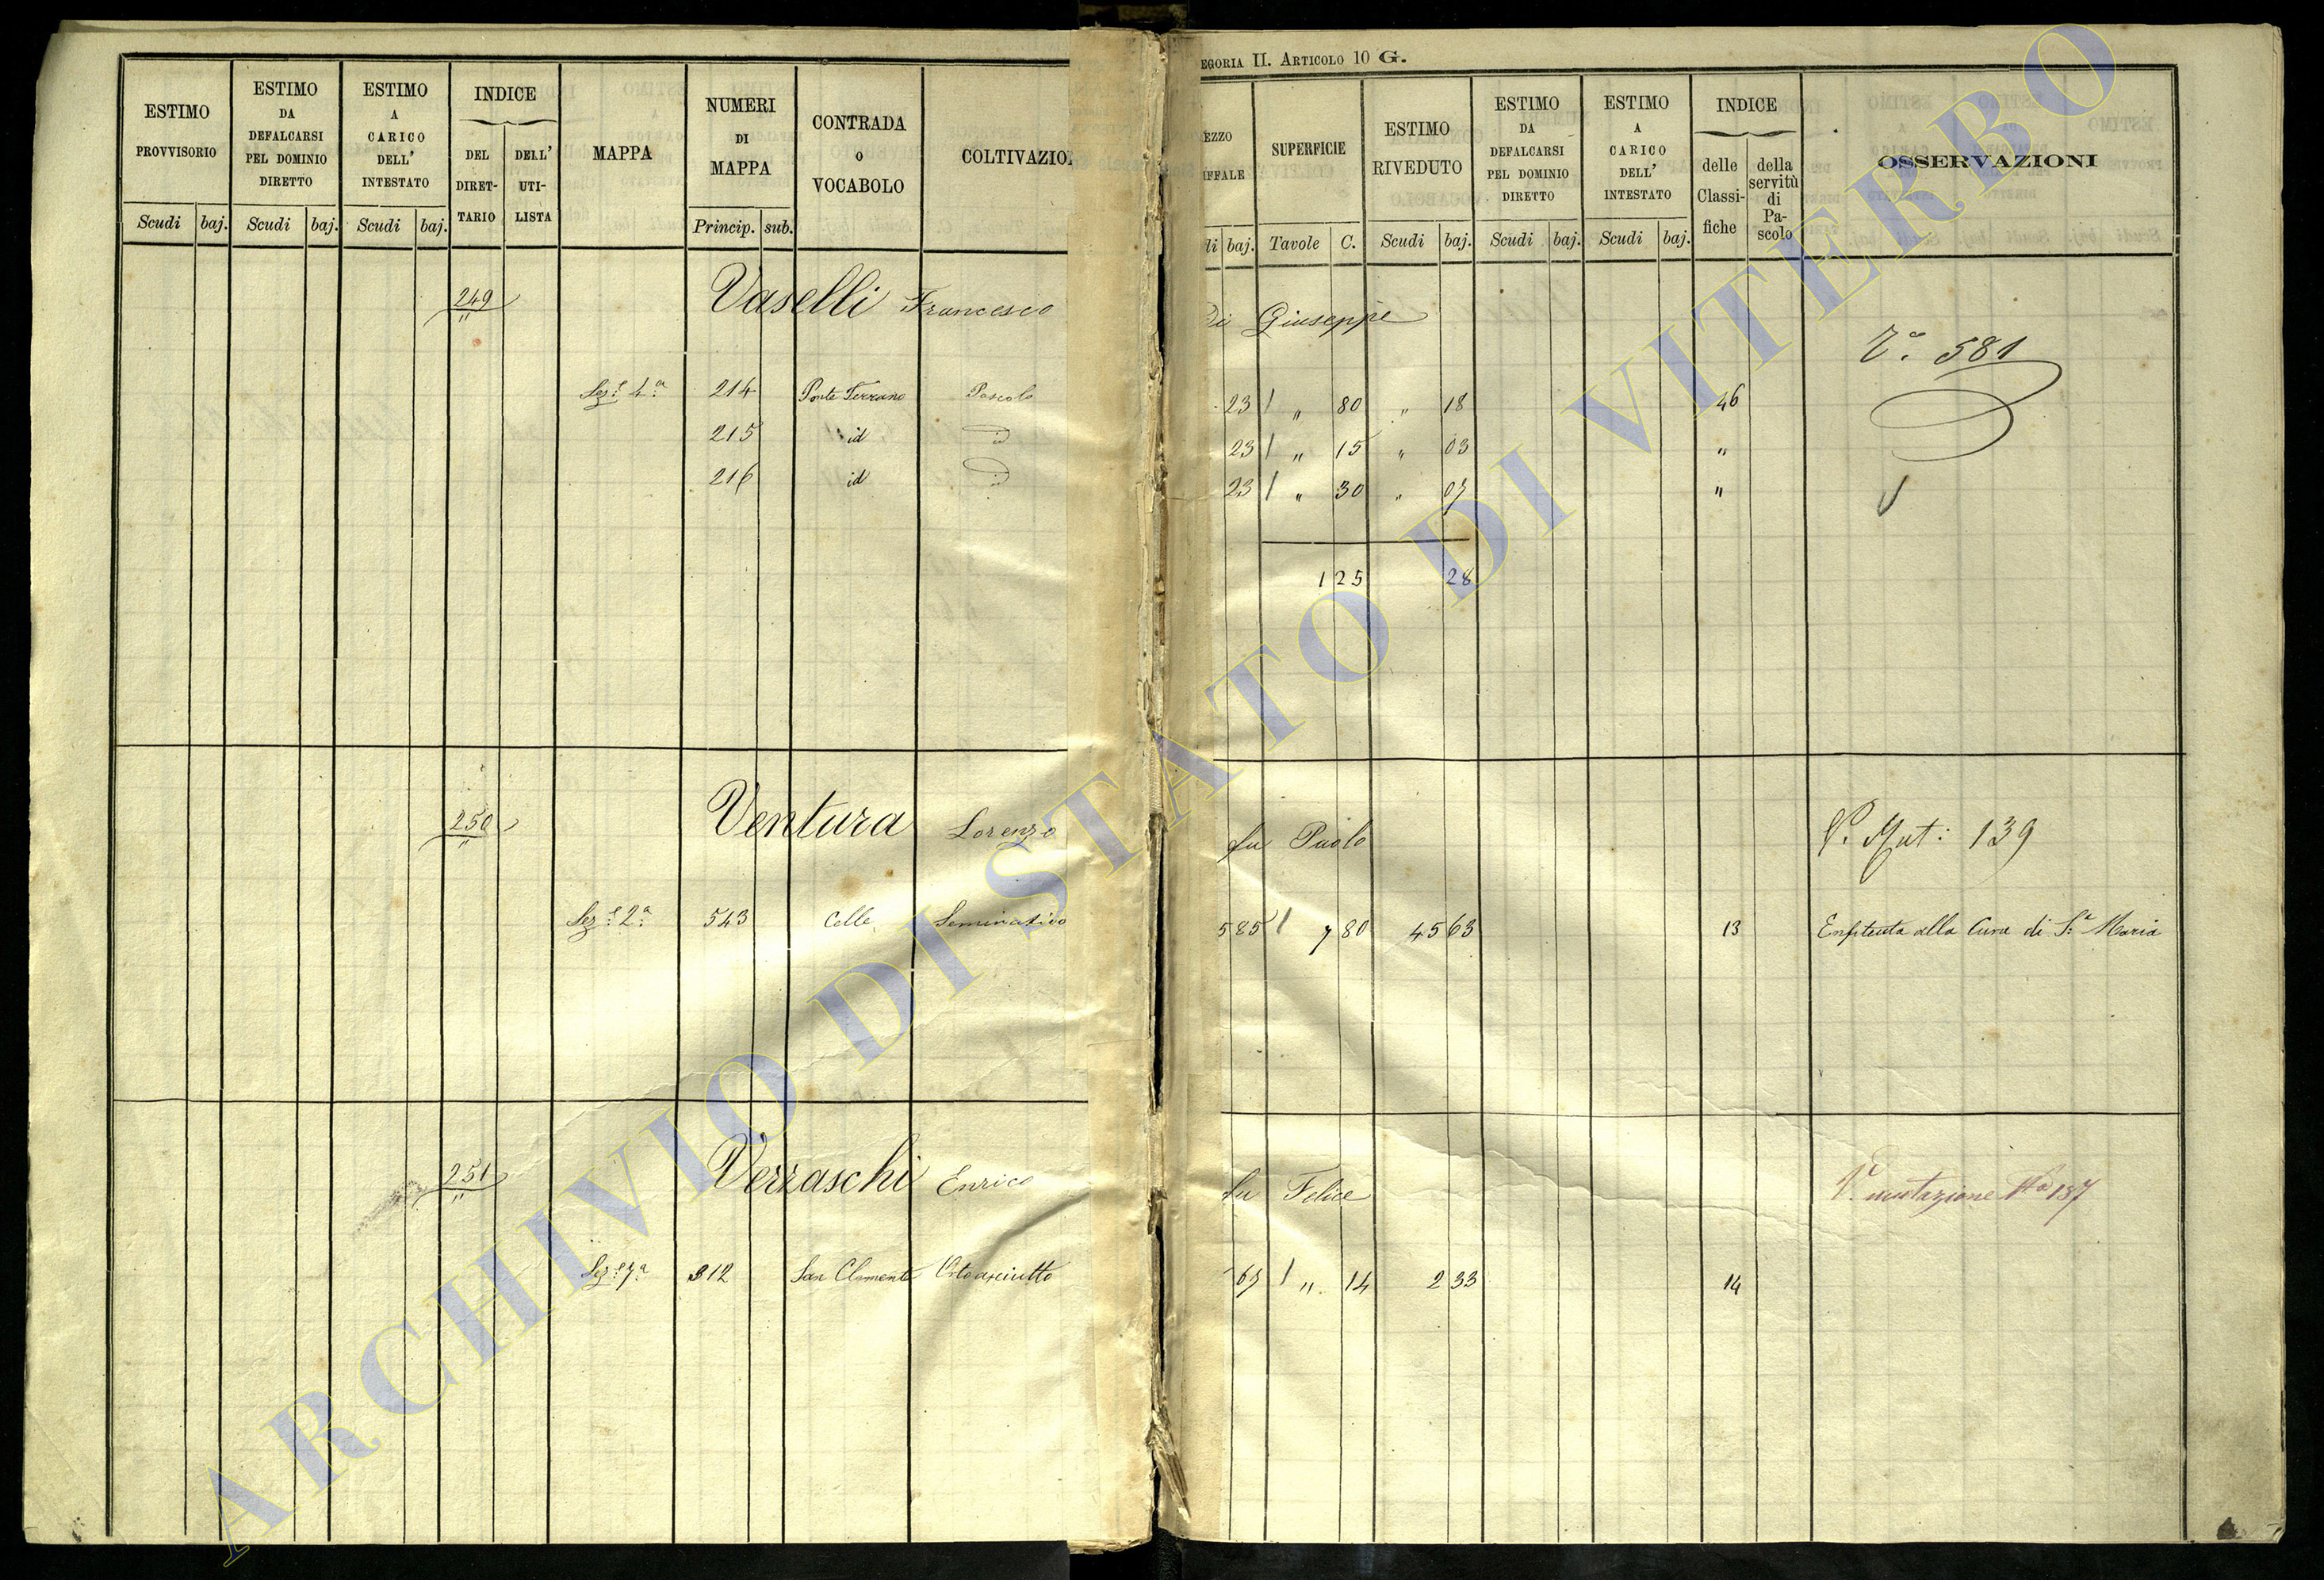 EGORIA II. ARTICOLO 10 G.
ESTIMO PROVVISORIO
Scudi baj.
ESTIMO DA DEFALCARSI PEL DOMINIO DIRETTO
Scudi baj.
ESTIMO A CARICO DELL' INTESTATO
Scudi baj.
INDICE
DEL DIRET-TARIO
DELL' UTI-LISTA
MAPPA
NUMERI DI MAPPA
Princip. sub.
CONTRADA O VOCABOLO
COLTIVAZIO
EZZO
IFFALE
li baj.
SUPERFICIE
Tavole C.
ESTIMO RIVEDUTO
Scudi baj.
ESTIMO DA DEFALCARSI PEL DOMINIO DIRETTO
Scudi baj.
ESTIMO A CARICO DELL' INTESTATO
Scudi baj.
INDICE
delle Classi-fiche
della servitù di Pa-scolo
OSSERVAZIONI
249 Vaselli Francesco Di Giuseppe
Va. 581
Sez.e 4.a 214 Ponte Terrano Pascolo 23 / " 80 " 18 46
215 id id 23 / " 15 " 03 "
216 id id 23 / " 30 " 07 "
1 25 28
250 Ventura Lorenzo fu Paolo V. Mut: 139
Sez.e 2.a 543 Celle Seminativo 585 / 7 80 45 63 13 Enfiteuta alla Cura di S.a Maria
251 Verraschi Enrico fu Felice V. mutazione No 137
Sez.e 7.a 312 San Clemente Orto asciutto 67 / " 14 2 33 14
ARCHIVIO DI STATO DI VITERBO